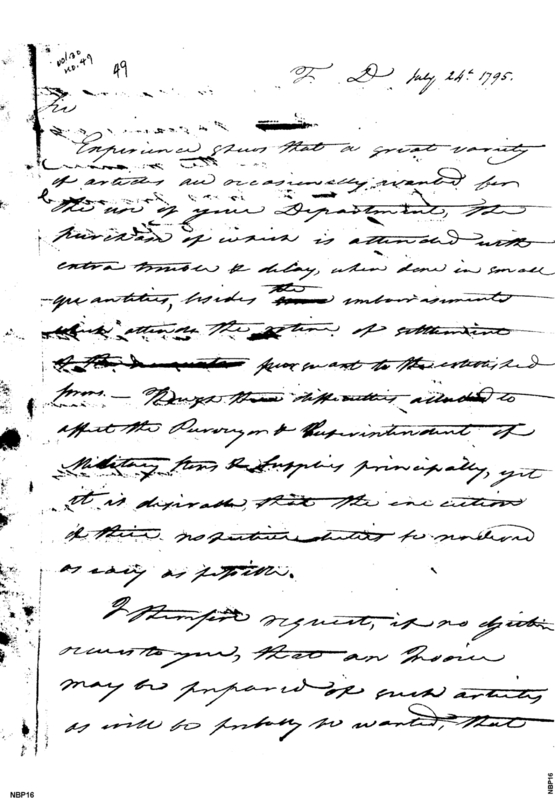 No. 49
49
T. D. July 24th 1795.
Sir
Experience shews that a great variety
of articles are occasionally wanted for
the use of your Department, the
purchase of which is attended with
extra trouble & delay, when done in small
quantities, besides the embarrassments
which attends the of settlement
pursuant to the established
forms. — Though these difficulties to
affect the Purveyor & Superintendent of
Military Stores & Supplies principally, yet
it is desirable, that the execution
of their respective duties be rendered
as easy as possible.
I therefore request, if no objection
occurs to you, that an Invoice
may be prepared of such articles
as will be probably be wanted, that
NBP16
NBP16